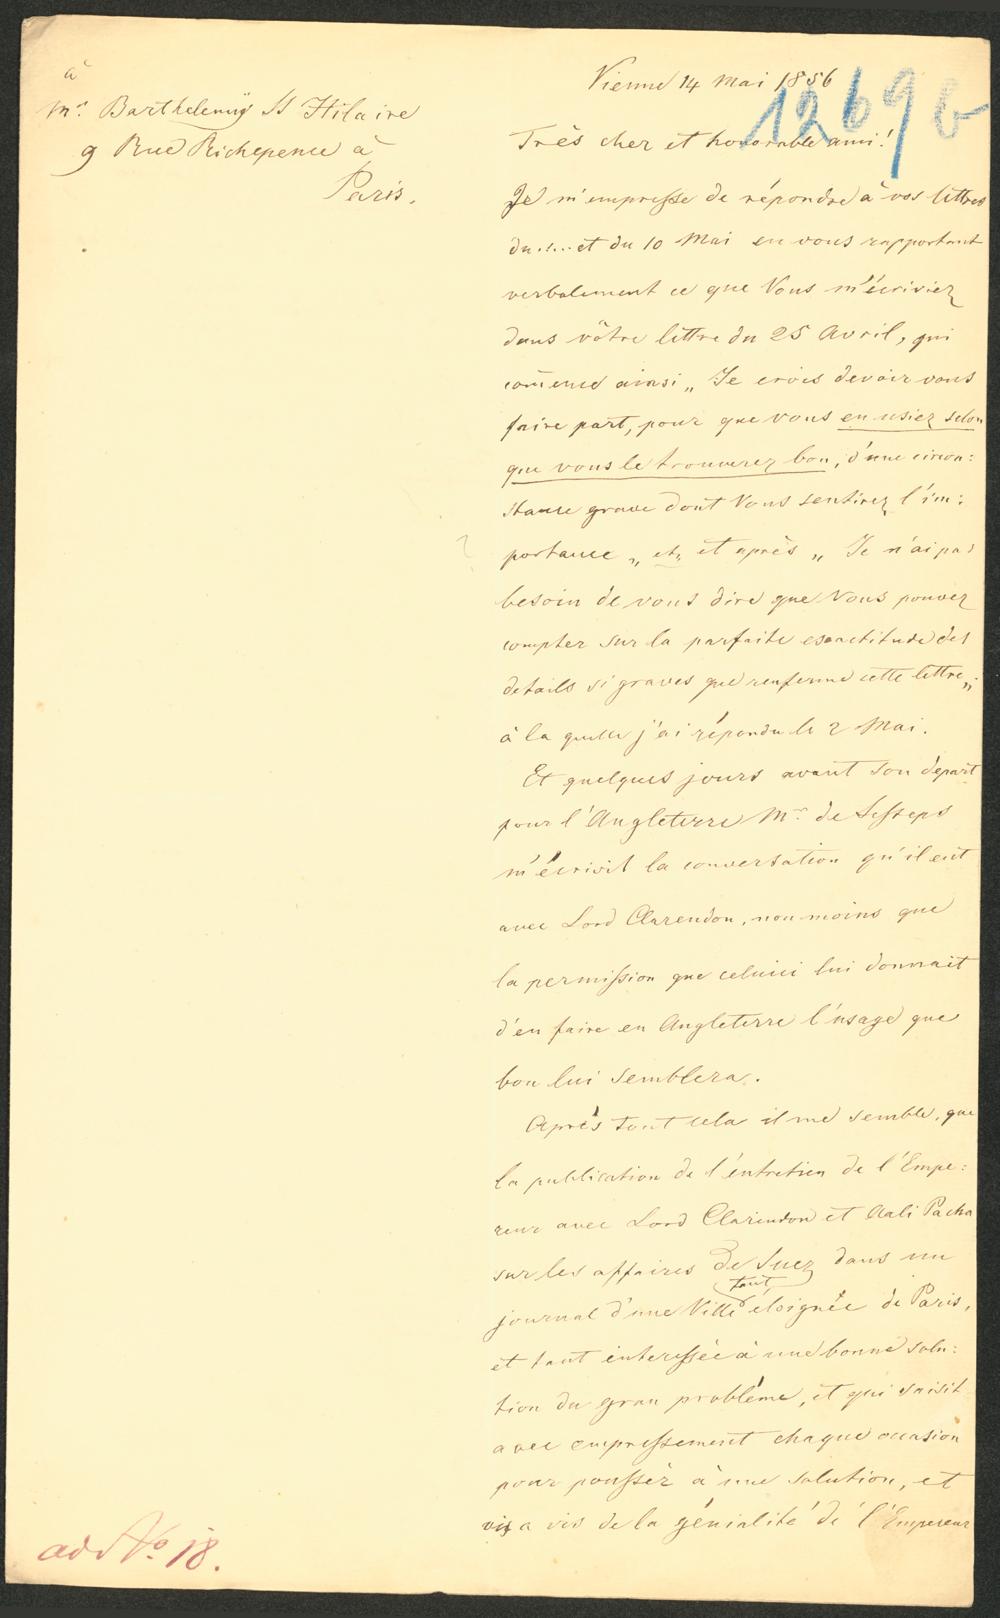 à
Mr. Barthelemy St Hilaire
9 Rue Richepence à
Paris.
Vienne 14 Mai 1856
12696
Très cher et honorable ami!
Je m'empresse de répondre à vos lettres
du .... et du 10 Mai en vous rapportant
verbalement ce que Vous m'écriviez
dans vôtre lettre du 25 Avril, qui
com̅ence ainsi „ Je crois devoir vous
faire part, pour que vous en usiez selon
que vous le trouverez bon, d'une circon:
stance grave dont Vous sentirez l'im:
portance „ etc et après „ Je n'ai pas
besoin de vous dire que Vous pouvez
compter sur la parfaite exactitude des
details si graves que renferme cette lettre„
à la quelle j'ai répondu le 2 Mai.
Et quelques jours avant son départ
pour l'Angleterre Mr. de Lesseps
m'écrivit la conversation qu'il eut
avec Lord Clarendon, non moins que
la permission que celuici lui donnait
d'en faire en Angleterre l'usage que
bon lui semblera.
Après tout cela il me semble, que
la publication de l'entretien de l'Empe:
reur avec Lord Clarendon et Aali Pacha
sur les affaires de Suez dans un
journal d'une Ville tant éloignée de Paris,
et tant interessée à une bonne solu:
tion du gran problème, et qui saisit
avec empressement chaque occasion
pour pousser à une solution, et
vis a vis de la génialité de l'Empereur
add No 18.